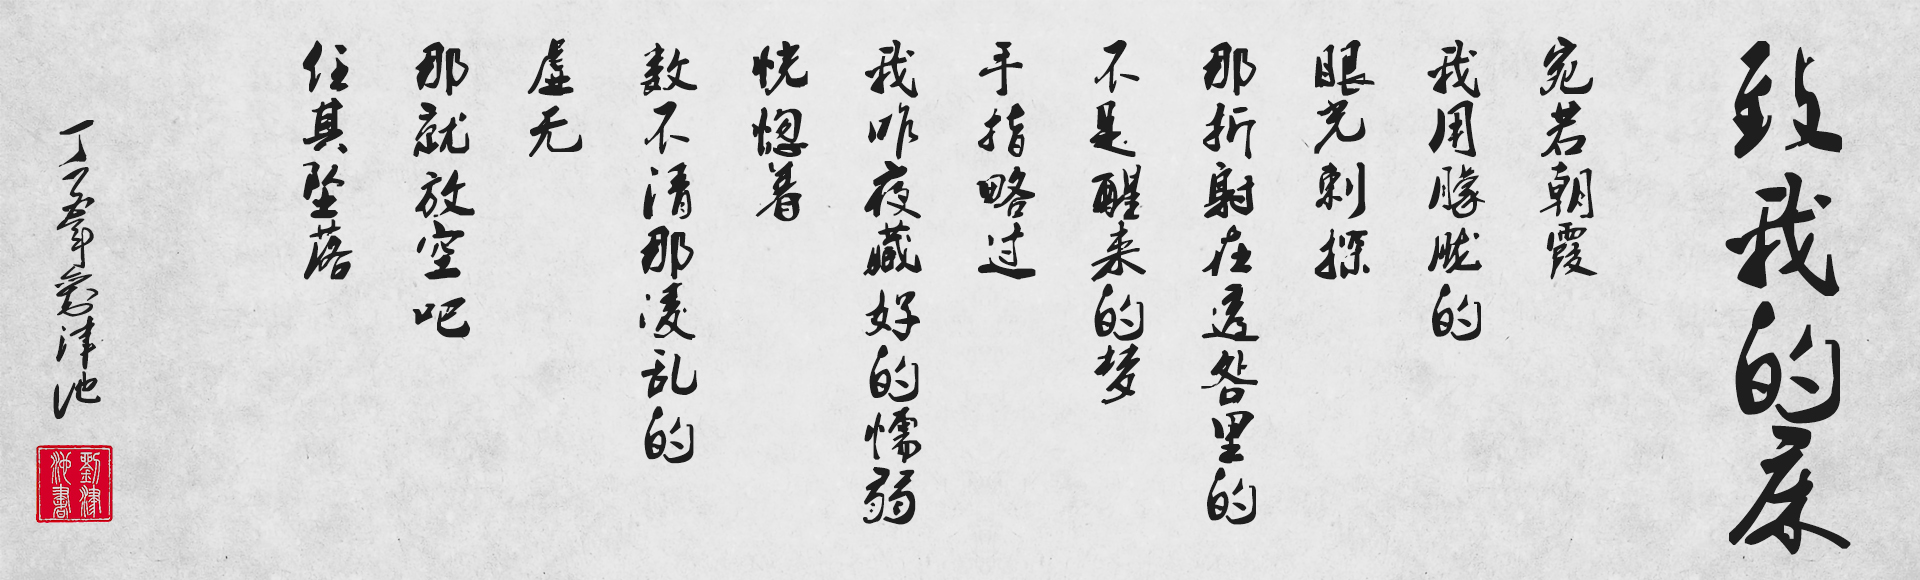 致我的床
宛若朝霞
我用朦胧的
眼光刺探
那折射在透咎里的
不是醒来的梦
手指略过
我昨夜藏好的懦弱
恍惚着
数不清那凌乱的
虚无
那就放空吧
任其坠落
丁酉年刘津池
劉津池書